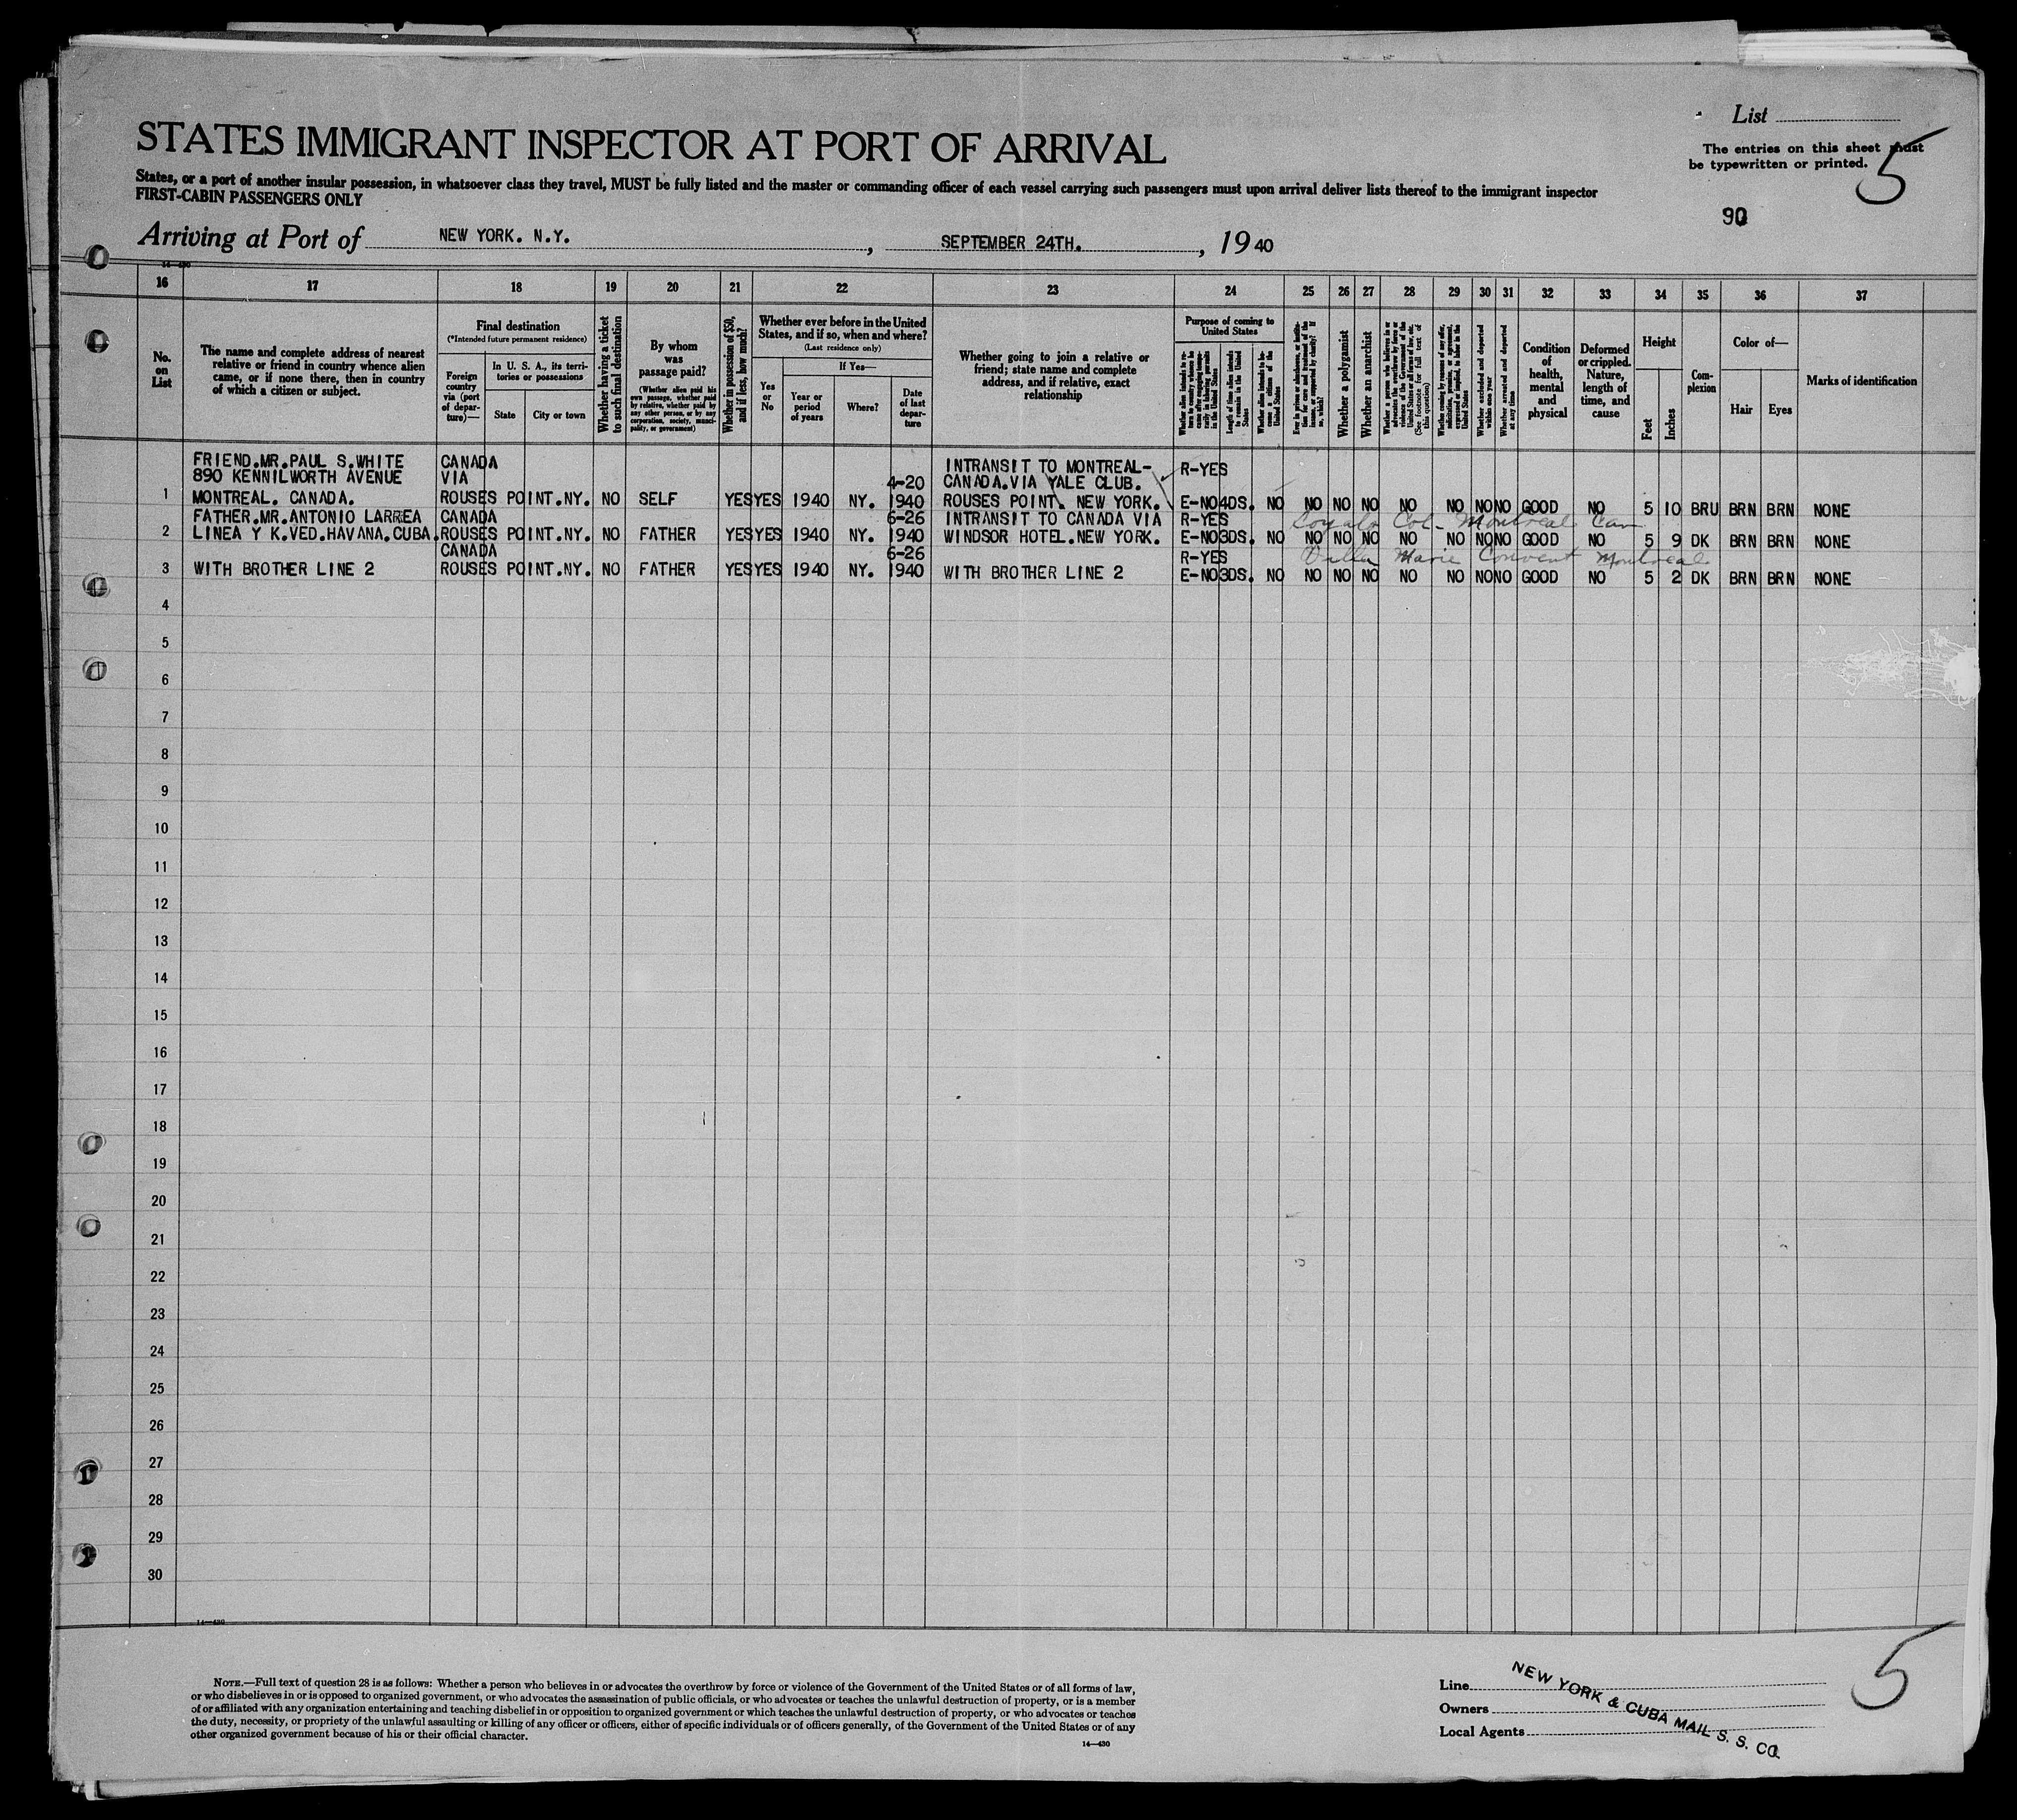 List
STATES IMMIGRANT INSPECTOR AT PORT OF ARRIVAL
The entries on this sheet must
be typewritten or printed.
5
States, or a port of another insular possession, in whatsoever class they travel, MUST be fully listed and the master or commanding officer of each vessel carrying such passengers must upon arrival deliver lists thereof to the immigrant inspector
FIRST-CABIN PASSENGERS ONLY
90
Arriving at Port of NEW YORK. N.Y. , SEPTEMBER 24TH. , 1940
14-430
16 17 18 19 20 21 22 23 24 25 26 27 28 29 30 31 32 33 34 35 36 37
No. on List
The name and complete address of nearest
relative or friend in country whence alien
came, or if none there, then in country
of which a citizen or subject.
Final destination
(*Intended future permanent residence)
Foreign country via (port of departure)—
In U. S. A., its territories or possessions
State
City or town
Whether having a ticket to such final destination
By whom was passage paid?
(Whether alien paid his own passage, whether paid by relative, whether paid by any other person, or by any corporation, society, municipality, or government)
Whether in possession of $50, and if less, how much?
Whether ever before in the United
States, and if so, when and where?
(Last residence only)
Yes or No
If Yes—
Year or period of years
Where?
Date of last departure
Whether going to join a relative or
friend; state name and complete
address, and if relative, exact
relationship
Purpose of coming to
United States
Length of time alien intends to remain in the United States
Whether alien intends to become a citizen of the United States
Whether a polygamist
Whether an anarchist
Whether arrested and deported at any time
Condition of health, mental and physical
Deformed or crippled. Nature, length of time, and cause
Height
Feet
Inches
Complexion
Color of—
Hair
Eyes
Marks of identification
FRIEND.MR.PAUL S.WHITE CANADA INTRANSIT TO MONTREAL- R-YES
890 KENNILWORTH AVENUE VIA 4-20 CANADA.VIA YALE CLUB.
1 MONTREAL. CANADA. ROUSES POINT.NY. NO SELF YES YES 1940 NY. 1940 ROUSES POINT. NEW YORK. E-NO 4DS. NO NO NO NO NO NO NO NO GOOD NO 5 10 BRU BRN BRN NONE
FATHER.MR.ANTONIO LARREA CANADA 6-26 INTRANSIT TO CANADA VIA R-YES Loyola Col- Montreal Can
2 LINEA Y K.VED.HAVANA.CUBA. ROUSES POINT.NY. NO FATHER YES YES 1940 NY. 1940 WINDSOR HOTEL.NEW YORK. E-NO 3DS. NO NO NO NO NO NO NO NO GOOD NO 5 9 DK BRN BRN NONE
CANADA 6-26 R-YES Marie Convent Montreal
3 WITH BROTHER LINE 2 ROUSES POINT.NY. NO FATHER YES YES 1940 NY. 1940 WITH BROTHER LINE 2 E-NO 3DS. NO NO NO NO NO NO NO NO GOOD NO 5 2 DK BRN BRN NONE
4
5
6
7
8
9
10
11
12
13
14
15
16
17
18
19
20
21
22
23
24
25
26
27
28
29
30
14-430
NOTE.—Full text of question 28 is as follows: Whether a person who believes in or advocates the overthrow by force or violence of the Government of the United States or of all forms of law,
or who disbelieves in or is opposed to organized government, or who advocates the assassination of public officials, or who advocates or teaches the unlawful destruction of property, or is a member
of or affiliated with any organization entertaining and teaching disbelief in or opposition to organized government or which teaches the unlawful destruction of property, or who advocates or teaches
the duty, necessity, or propriety of the unlawful assaulting or killing of any officer or officers, either of specific individuals or of officers generally, of the Government of the United States or of any
other organized government because of his or their official character.
14-430
Line
Owners
Local Agents
NEW YORK & CUBA MAIL S. S. CO.
5